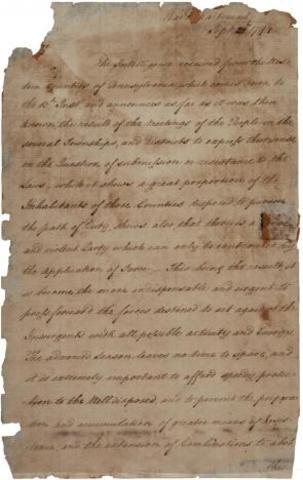 War Department
Sept 20th 179
The Intelligence received from the Wes-
tern Counties of Pennsylvania which comes down to
the 13th Inst. and announces as far as it was then
known the result of the meetings of the People in the
several Townships, and Districts to express their sense
on the Question of submission or resistance to the
Laws, while it shews a great proportion of the
Inhabitants of those Counties disposed to pursue
the path of Duty, shews also that there is a
and violent Party which can only be controuled by
the application of Force. This being the result, it
is become the more indispensable and urgent to
press forward the forces destined to act against the
Insurgents with all possible activity and Energy.
The advanced season leaves no time to spare, and
it is extremely important to afford speedy protec-
tion to the well disposed, and to prevent the prepara-
tion and accumulation of greater means of Resis-
tance, and the extension of Combinations to abet
the